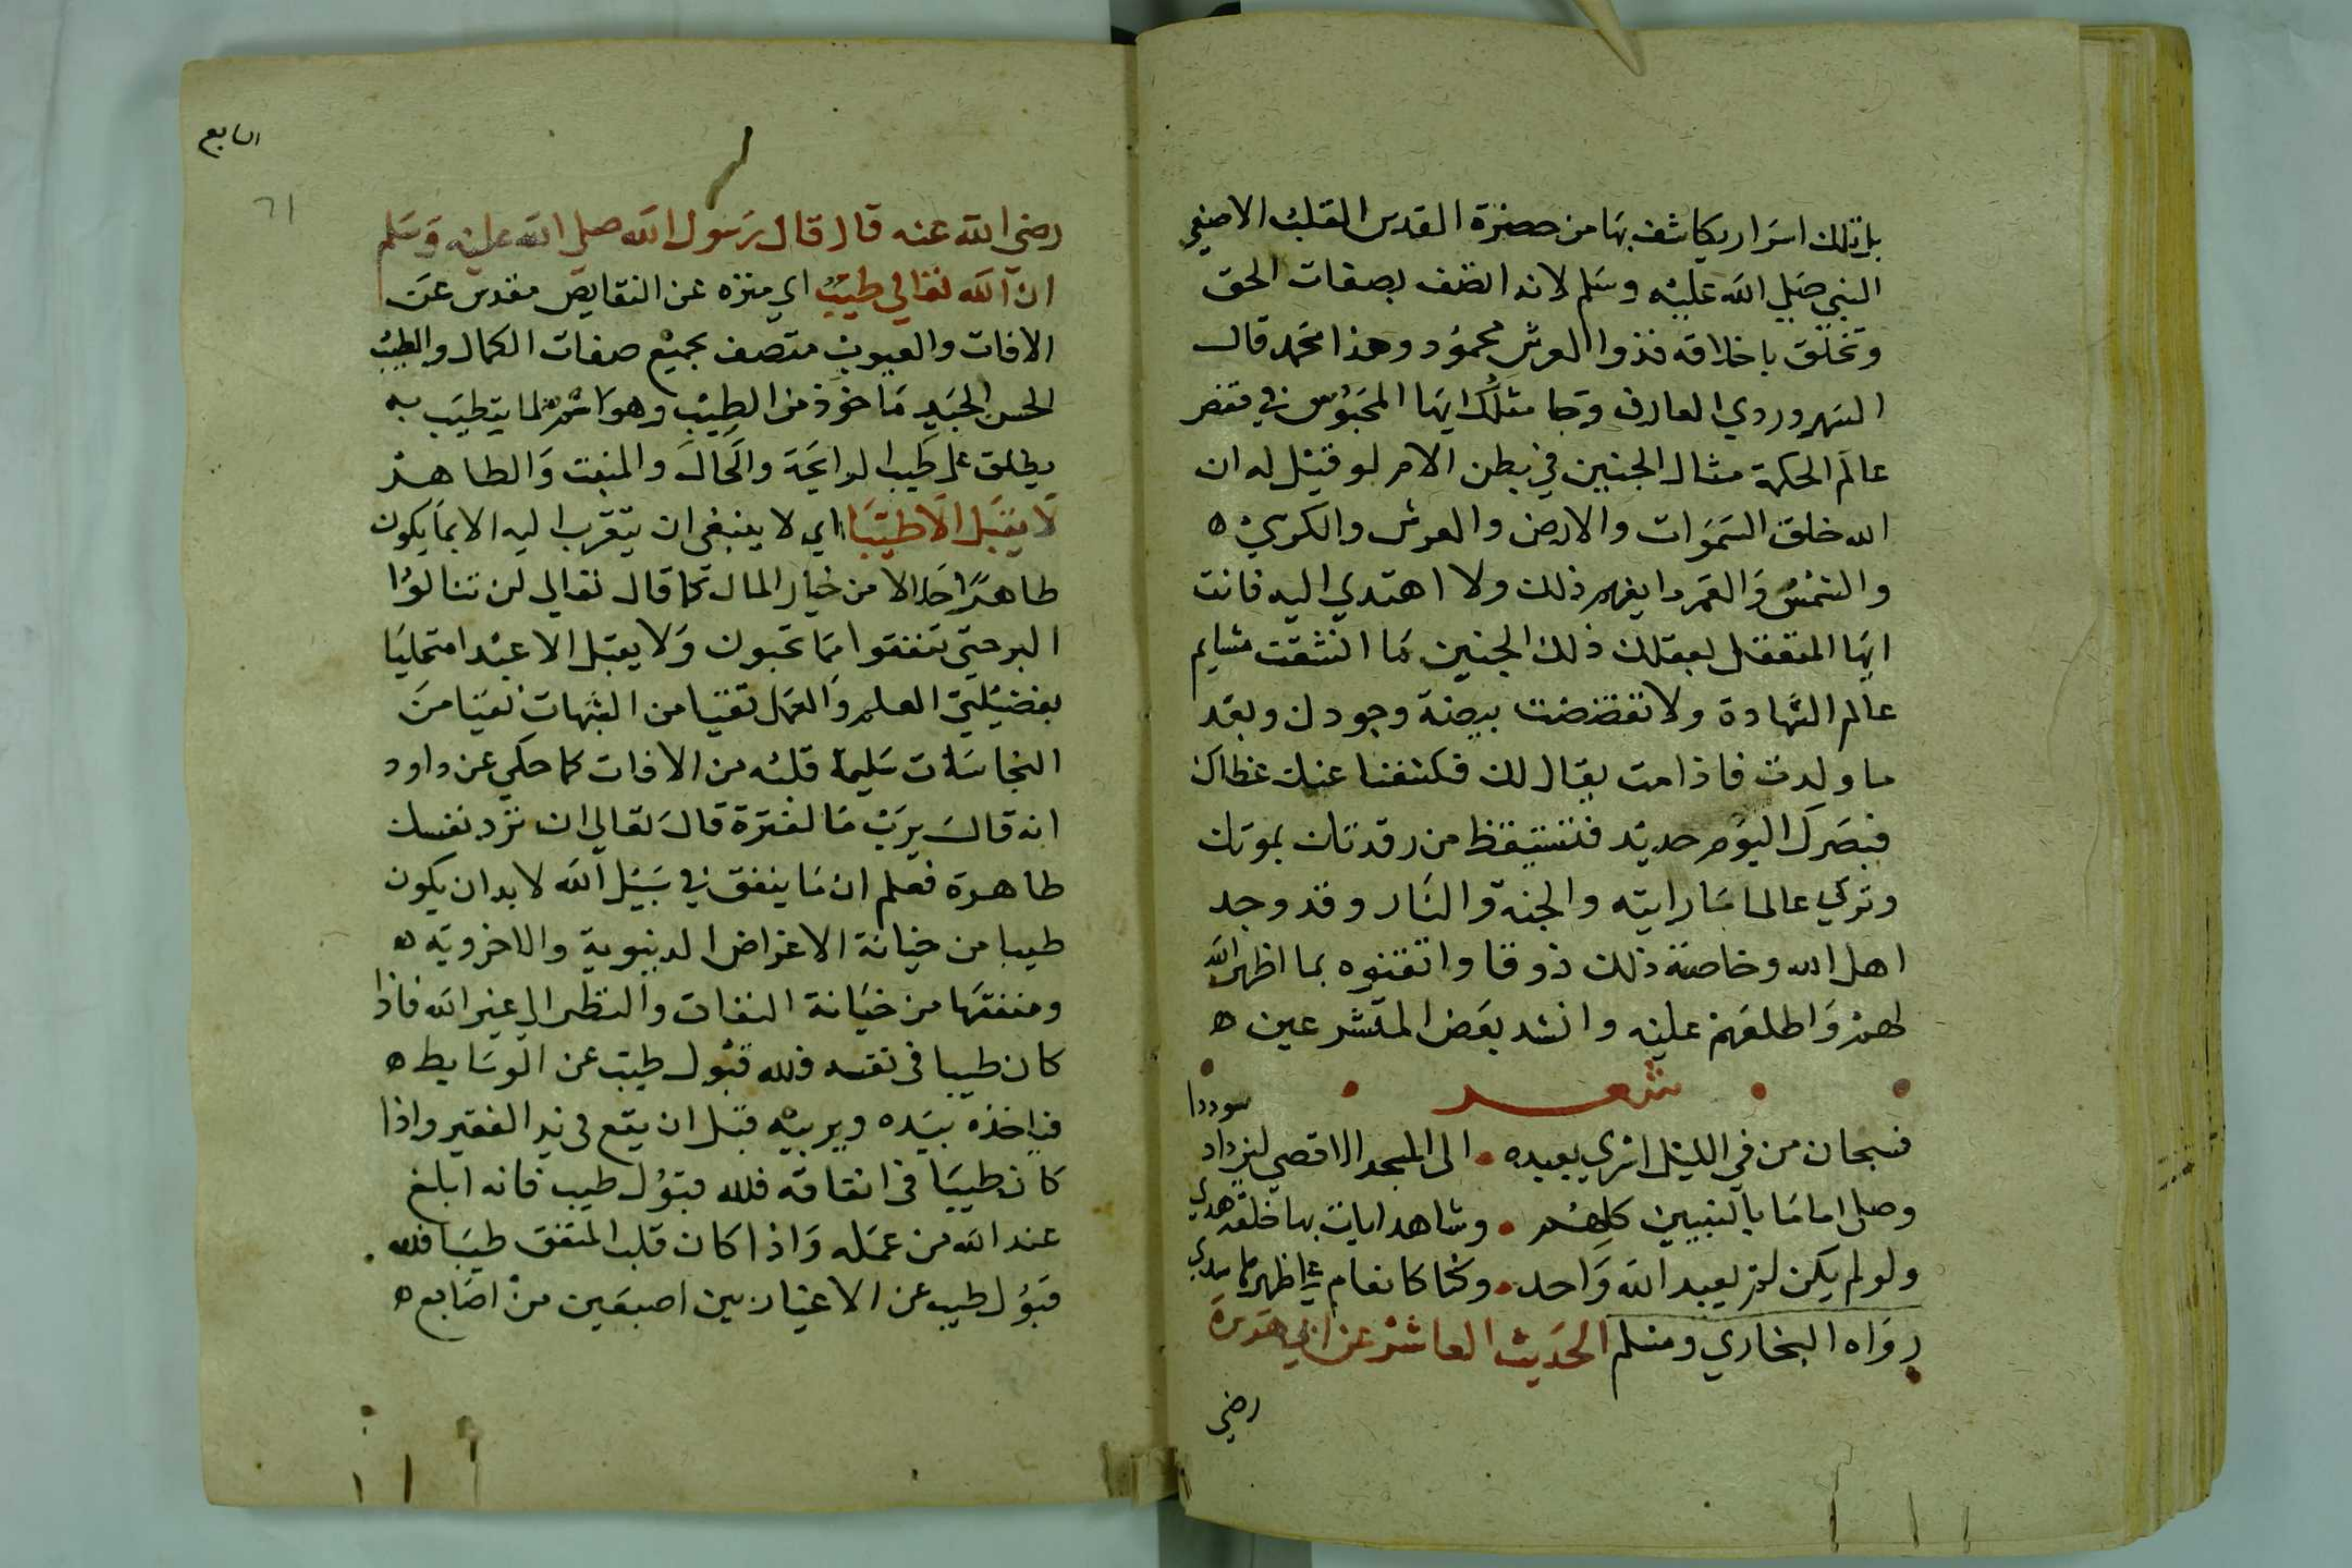 بل تلك اسرار يكاشف بها من حضرة القدس القلب الاصفي
النبي صلي الله عليه وسلم لانه اتصف بصفات الحق
وتخلق باخلاقه فذوا العرش محمود وهذا محمد قال
السهروردي العارف وما مثلك ايها المحبوس في قفص
عالم الحكمة مثال الجنين في بطن الام لو قيل له ان
الله خلق السموات والارض والعرش والكرسي ه
والشمس والقمر ما يفهم ذلك ولا اهتدي اليه فانت
ايها المتعقل بعقلك ذلك الجنين ما انشقت مشايم
عالم الشهادة ولا تفضضت بيضة وجودك وبعد
ما ولدت فاذا مت يقال لك فكشفنا عنك غطاك
فبصرك اليوم حديد فتستيقظ من رقدتك بموتك
وتري عالما ما رايته والجنة والنار وقد وجد
اهل الله وخاصته ذلك ذوقا واتقنوه بما اظهر الله
لهم واطلعهم عليه وانشد بعض المتشرعين ه
شعر
فسبحان من في الليل اسري بعبده الى المسجد الاقصي ليزداد سوددا
وصلى اماما بالنبيين كلهم وشاهد ايات بها خلقه هدي
ولو لم يكن لم يعبد الله واحد وكنا كانعام
رواه البخاري ومسلم الحديث العاشر عن ابي هريرة
رضي
السابع
٦١
رضي الله عنه قال قال رسول الله صلي الله عليه وسلم
ان الله تعالي طيب اي منزه عن النقايص مقدس عن
الافات والعيوب متصف بجميع صفات الكمال والطيب
الحسن الجيد ماخوذ من الطيب وهو اسم لما يتطيب به
يطلق على طيب الرايحة والحال والمنبت والطاهر
لا يقبل الا طيبا اي لا ينبغي ان يتقرب اليه الا بما يكون
طاهرا حلالا من خيار المال كما قال تعالي لن تنالوا
البر حتي تنفقوا مما تحبون ولا يقبل الا عبدا متحليا
بفضيلتي العلم والعمل تقيا من الشبهات نقيا من
النجاسات سليما قلبه من الافات كما حكي عن داود
انه قال يرب ما لفترة قال تعالي ان ترد نفسك
طاهرة فعلم ان ما ينفق في سبيل الله لا بد ان يكون
طيبا من خيانة الاغراض الدنيوية والاخروية ه
ومنفقها من خيانة التفات والنظر الي غير الله فاذا
كان طيبا في نفسه فلله قبول طيب عن الوسايط ه
فياخذه بيده ويربيه قبل ان يقع في يد الفقير واذا
كان طيبا في انفاقه فلله قبول طيب فانه ابلغ
عند الله من عمله واذا كان قلب المنفق طيبا فلله
قبول طيب عن الاغيار بين اصبعين من اصابع ه